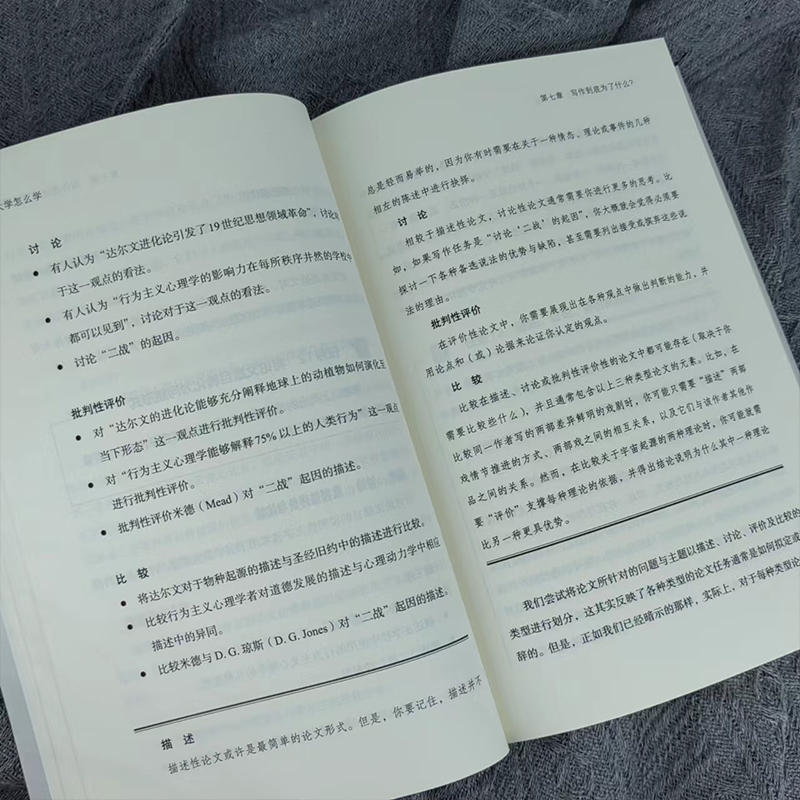 大学怎么学
讨 论
● 有人认为“达尔文进化论引发了19世纪思想领域革命”，讨论对
于这一观点的看法。
● 有人认为“行为主义心理学的影响力在每所秩序井然的学校中
都可以见到”，讨论对于这一观点的看法。
● 讨论“二战”的起因。
批判性评价
● 对“达尔文的进化论能够充分阐释地球上的动植物如何演化至
当下形态”这一观点进行批判性评价。
● 对“行为主义心理学能够解释75%以上的人类行为”这一观点
进行批判性评价。
● 批判性评价米德（Mead）对“二战”起因的描述。
比 较
● 将达尔文对于物种起源的描述与圣经旧约中的描述进行比较。
● 比较行为主义心理学者对道德发展的描述与心理动力学中相应
描述中的异同。
● 比较米德与D. G. 琼斯（D. G. Jones）对“二战”起因的描述。
描 述
描述性论文或许是最简单的论文形式。但是，你要记住，描述并不
第七章 写作到底为了什么？
总是轻而易举的，因为你有时需要在关于一种情态、理论或事件的几种
相左的陈述中进行抉择。
讨 论
相较于描述性论文，讨论性论文通常需要你进行更多的思考。比
如，如果写作任务是“讨论‘二战’的起因”，你大概就会觉得必须要
探讨一下各种备选说法的优势与缺陷，甚至需要列出接受或摈弃这些说
法的理由。
批判性评价
在评价性论文中，你需要展现出在各种观点中做出判断的能力，并
用论点和（或）论据来论证你认定的观点。
比 较
比较在描述、讨论或批判性评价性的论文中都可能存在（取决于你
需要比较些什么），并且通常包含以上三种类型论文的元素。比如，在
比较同一作者写的两部差异鲜明的戏剧时，你可能只需要“描述”两部
戏情节推进的方式、两部戏之间的相互关系，以及它们与该作者其他作
品之间的关系。然而，在比较关于宇宙起源的两种理论时，你可能就需
要“评价”支撑每种理论的依据，并得出结论说明为什么其中一种理论
比另一种更具优势。
我们尝试将论文所针对的问题与主题以描述、讨论、评价及比较的
类型进行划分，这其实反映了各种类型的论文任务通常是如何拟定或
辞的。但是，正如我们已经暗示的那样，实际上，对于每种类型论